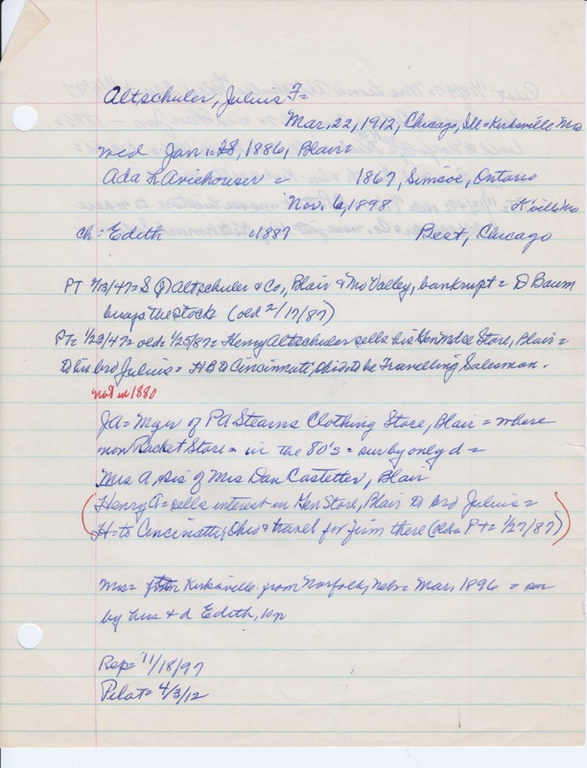 Altschuler, Julius F=
Mar, 22, 1912, Chicago, Ill = Kirksville Mo
med Jan. 28, 1886, Blair=
Ada L = 1867, Simcoe, Ontario
Nov. 6, 1898 K'ville Mo
ch: Edith 1887 Best, Chicago
PT 7/13/47= S Altschuler & Co., Blair & Mo Valley, bankrupt = D Baum
buys the stock (old 2/17/87)
PT= 1/29/47= old= 1/25/87= Henry Altschuler sells his Gen Mdse Store, Blair=
to his bro Julius= H B to Cincinnati, Ohio to be Travelling Salesman.
not in 1880
JA= Mgr of PA Stearns Clothing Store, Blair = where
now Racket Store= in the 80's = sur by only d =
Mrs A, sis of Mrs Dan Castetter, Blair
(Henry A= sells interest in Gen Store, Blair to bro Julius=
H= to Cincinatti, Ohio & travel for firm there (old= PT= 1/27/87))
Mrs= Kirksville from Norfolk, Nebr= Mar, 1896 = sur
by hus & d Edith, 10
Rep= 11/18/97
Pilot= 4/3/12